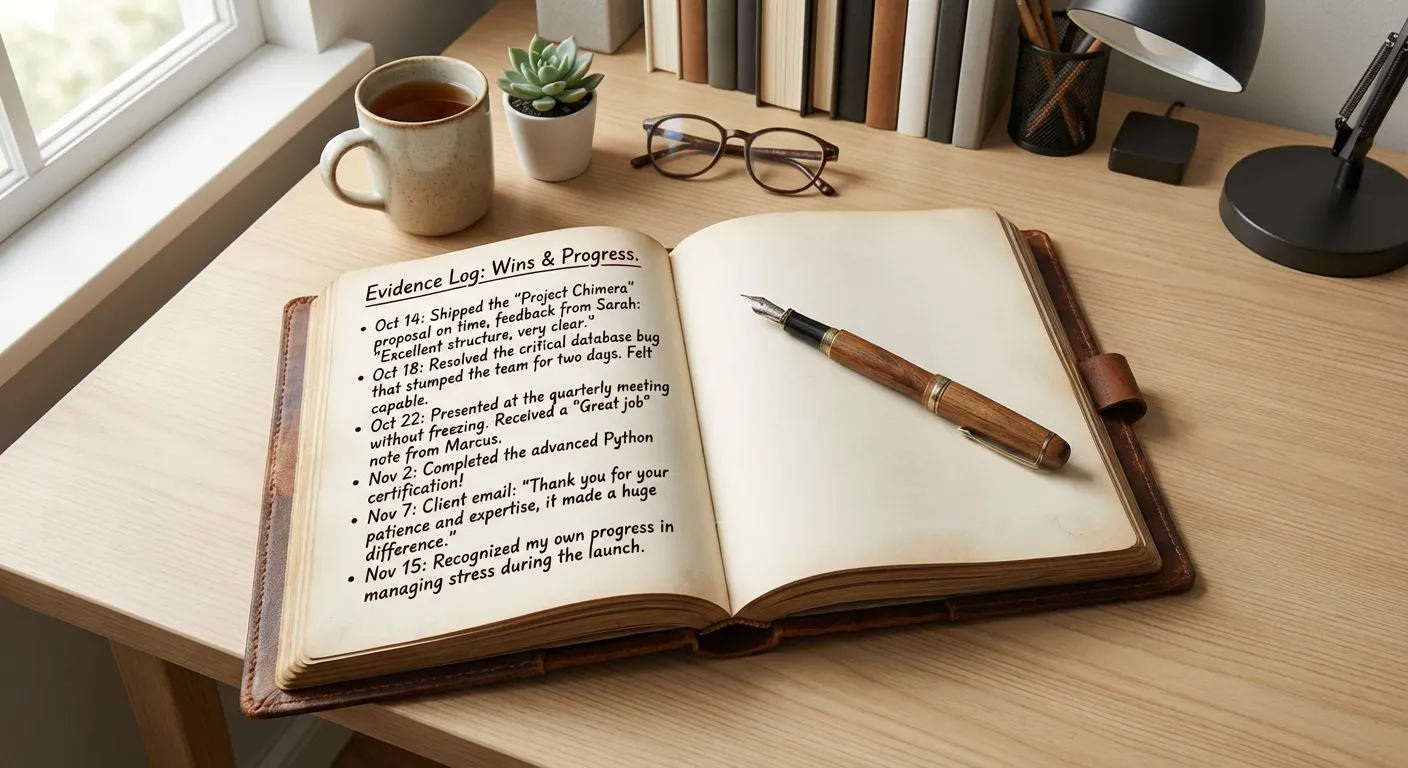 Evidence Log: Wins & Progress.
• Oct 14: Shipped the "Project Chimera"
proposal on time, feedback from Sarah:
"Excellent structure, very clear."
• Oct 18: Resolved the critical database bug
that stumped the team for two days. Felt
capable.
• Oct 22: Presented at the quarterly meeting
without freezing. Received a "Great job"
note from Marcus.
• Nov 2: Completed the advanced Python
certification!
• Nov 7: Client email: "Thank you for your
patience and expertise, it made a huge
difference."
• Nov 15: Recognized my own progress in
managing stress during the launch.